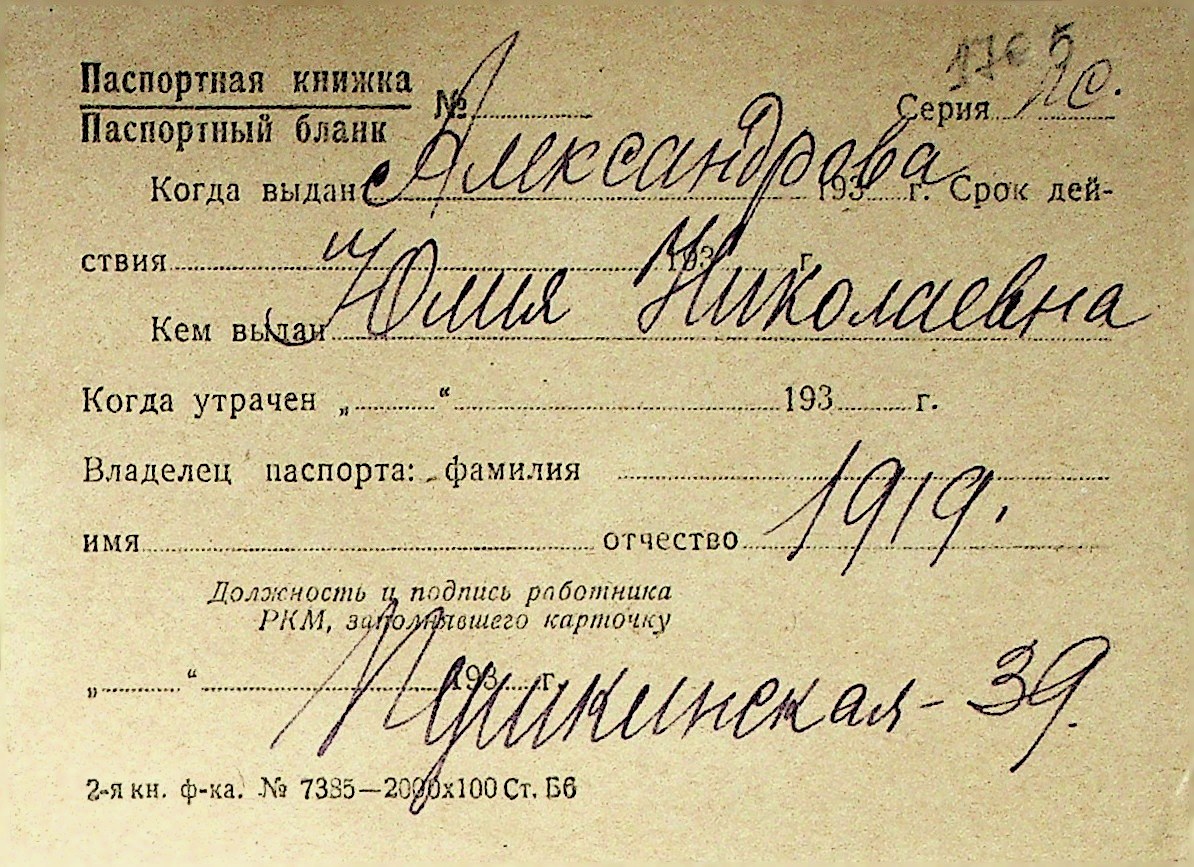 Паспортная книжка
Паспортный бланк
№ Серия
Александрова
Когда выдан 193 г. Срок дей-
ствия 193 г.
Юлия Николаевна
Кем выдан
Когда утрачен „ “ 193 г.
Владелец паспорта: фамилия
1919.
имя отчество
Должность и подпись работника
РКМ, заполнявшего карточку
Пушкинская - 39.
„ “ 193 г.
2-я кн. ф-ка. № 7385—2000х100 Ст. Б6